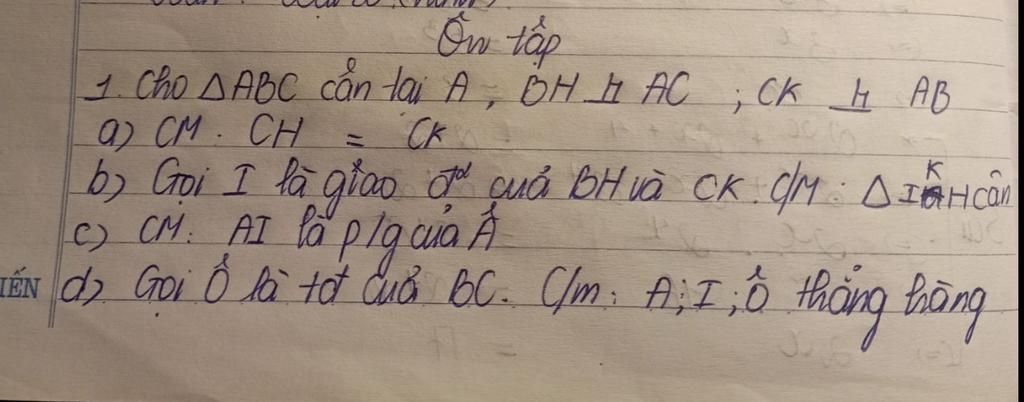 Ôn tập
1. Cho △ABC cân tại A, BH ⊥ AC ; CK ⊥ AB
a) CM: CH = CK
b) Gọi I là giao đ² của BH và CK. C/M: △IKH cân
c) CM: AI là p/g của Â
IẾN d) Gọi Ô là tđ của BC. C/m: A; I; Ô thẳng hàng